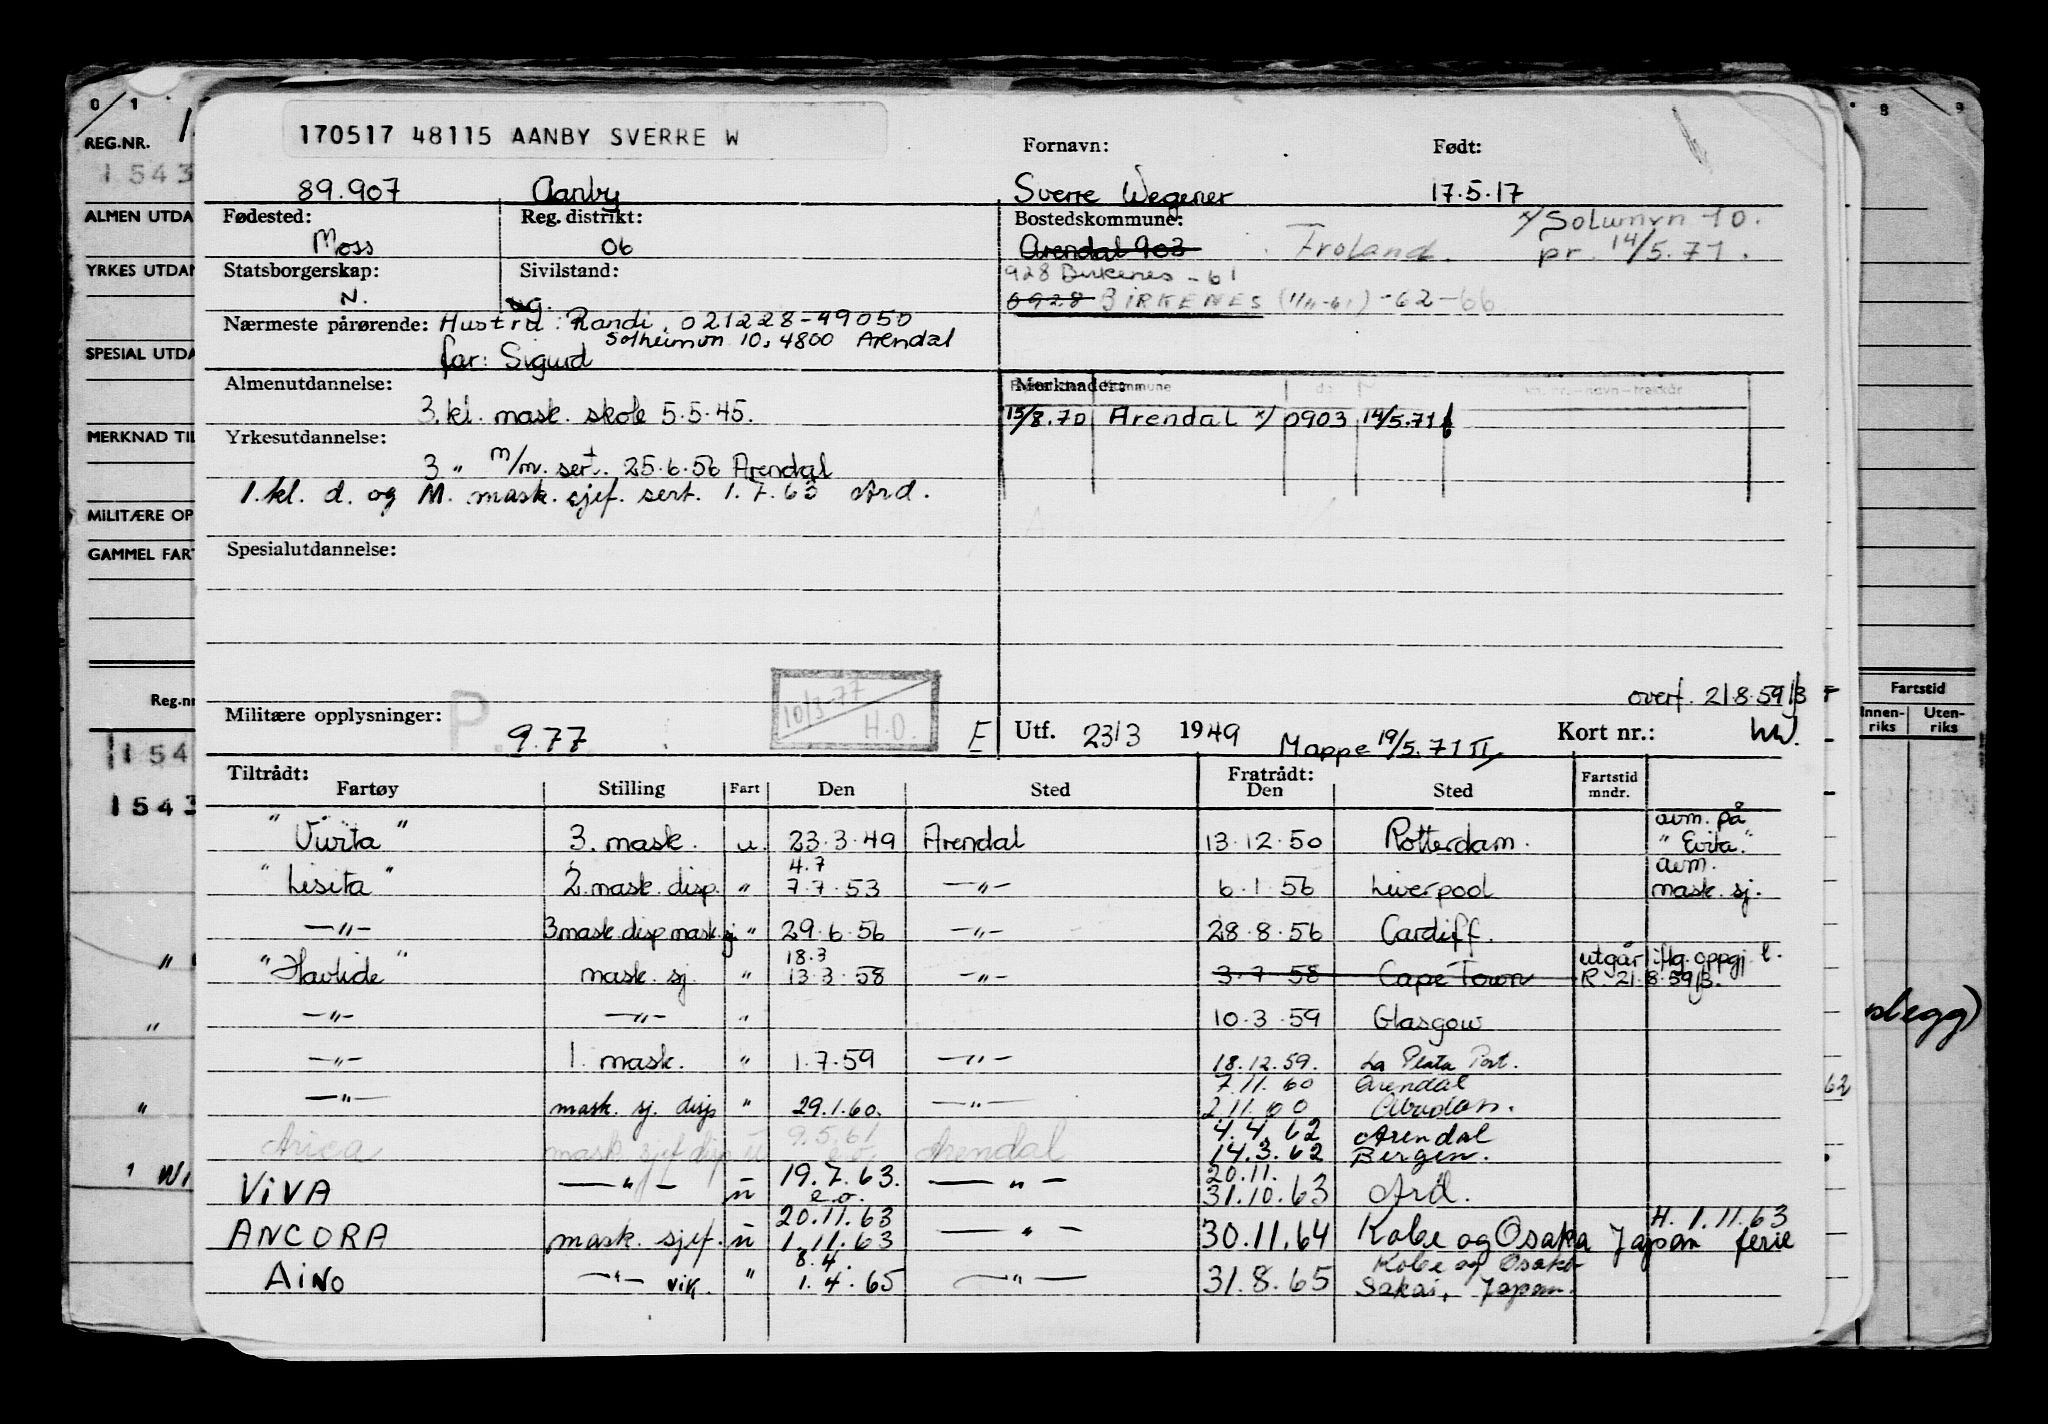 0/1
REG.NR.
1543
ALMEN UTDA
YRKES UTDAN
SPESIAL UTDA
MERKNAD TIL
MILITÆRE OP
GAMMEL FART
Reg.nr
154
1543
170517 48115 AANBY SVERRE W
Fornavn: Født:
89.907 Aanby Sverre Wegener 17.5.17
Fødested: Reg. distrikt: Bostedskommune:
Moss 06 Arendal 903 Froland.
pr. 14/5.71.
Statsborgerskap: Sivilstand: 928 Birkenes - 61
N. ug. 0928 BIRKENES (1/11-61) -62-66
Nærmeste pårørende: Hustru: Randi, 021228-49050
Solheimvn 10, 4800 Arendal
far: Sigurd
Almenutdannelse: Merknader:
3. kl. mask. skole 5.5.45. 15/8.70 Arendal x/ 0903 14/5.71
Yrkesutdannelse:
3 " m/m. sert. 25.6.56 Arendal
1. kl. d. og M. mask. sjef. sert. 1.7.63 Ard.
Spesialutdannelse:
10/3-77
H.O.
overf. 21.8.59/B
Militære opplysninger: 9.77 E Utf. 23/3 1949 Mappe 19/5.71 II Kort nr.:
Tiltrådt: Fratrådt:
Fartøy Stilling Fart Den Sted Den Sted Fartstid mndr.
"Vivita" 3. mask. u. 23.3.49 Arendal 13.12.50 Rotterdam. avm. på "Evita."
4.7
"Lisita" 2. mask. disp. " 7.7.53 —"— 6.1.56 Liverpool avm. mask. sj.
—"— 3 mask. disp mask. sj " 29.6.56 —"— 28.8.56 Cardiff.
18.3
"Havlide" mask. sj. " 13.3.58 —"— 3.7.58 Cape Town utgår iflg. oppgj. f. R. 21.8.59/B.
—"— —"— " 10.3.59 Glasgow
—"— 1. mask. " 1.7.59 —"— 18.12.59. La Plata Port.
7.11.60 Arendal
—"— mask. sj. disp " 29.1.60. —"— 2.11.60 Abadan.
9.5.61 4.4.62 Arendal
Arica mask sjef disp u e.o. Arendal 14.3.62 Bergen.
19.7.63. 20.11.
VIVA —"— u e.o. —"— 31.10.63 Ard.
20.11.63 H. 1.11.63
ANCORA mask. sjef. u 1.11.63 —"— 30.11.64 Kobe og Osaka Japan ferie
8.4. Kobe og Osaka
AINO —"— vik. " 1.4.65 —"— 31.8.65 Sakai, Japan.
8 9
Fartstid
Innen-riks Uten-riks
62